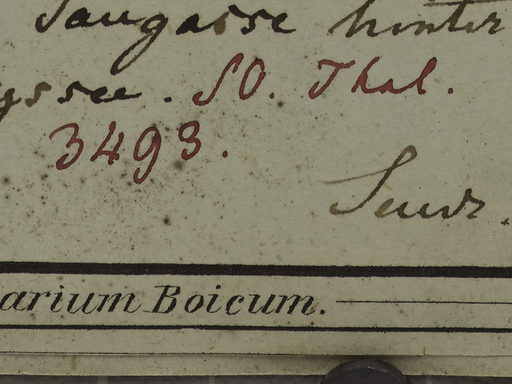 Saugasse hinter
yssee. SO. Thal.
3493.
Sendr.
arium Boicum.